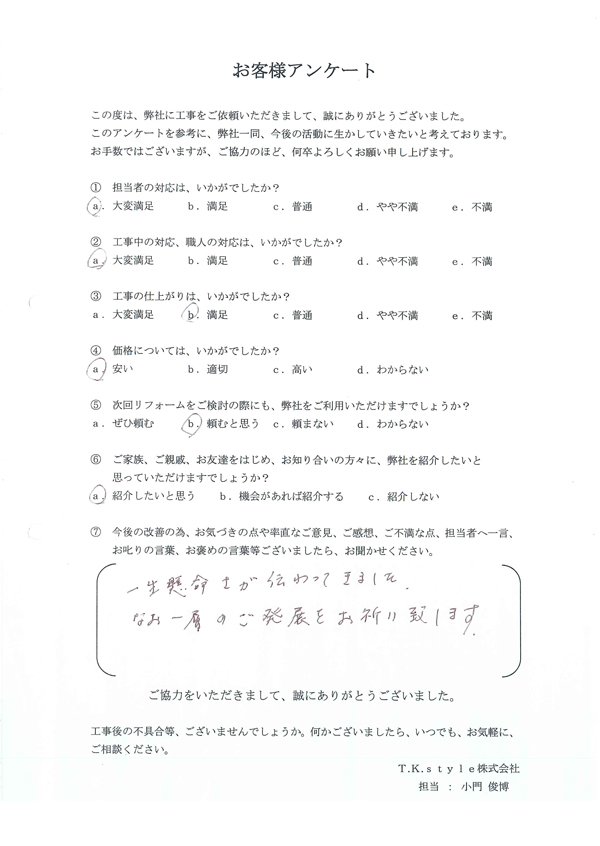 お客様アンケート
この度は、弊社に工事をご依頼いただきまして、誠にありがとうございました。
このアンケートを参考に、弊社一同、今後の活動に生かしていきたいと考えております。
お手数ではございますが、ご協力のほど、何卒よろしくお願い申し上げます。
① 担当者の対応は、いかがでしたか？
a．大変満足 b．満足 c．普通 d．やや不満 e．不満
② 工事中の対応、職人の対応は、いかがでしたか？
a．大変満足 b．満足 c．普通 d．やや不満 e．不満
③ 工事の仕上がりは、いかがでしたか？
a．大変満足 b．満足 c．普通 d．やや不満 e．不満
④ 価格については、いかがでしたか？
a．安い b．適切 c．高い d．わからない
⑤ 次回リフォームをご検討の際にも、弊社をご利用いただけますでしょうか？
a．ぜひ頼む b．頼むと思う c．頼まない d．わからない
⑥ ご家族、ご親戚、お友達をはじめ、お知り合いの方々に、弊社を紹介したいと
思っていただけますでしょうか？
a．紹介したいと思う b．機会があれば紹介する c．紹介しない
⑦ 今後の改善の為、お気づきの点や率直なご意見、ご感想、ご不満な点、担当者へ一言、
お叱りの言葉、お褒めの言葉等ございましたら、お聞かせください。
一生懸命さが伝わってきました.
なお一層のご発展をお祈り致します.
ご協力をいただきまして、誠にありがとうございました。
工事後の不具合等、ございませんでしょうか。何かございましたら、いつでも、お気軽に、
ご相談ください。
T.K.style株式会社
担当 ： 小門 俊博